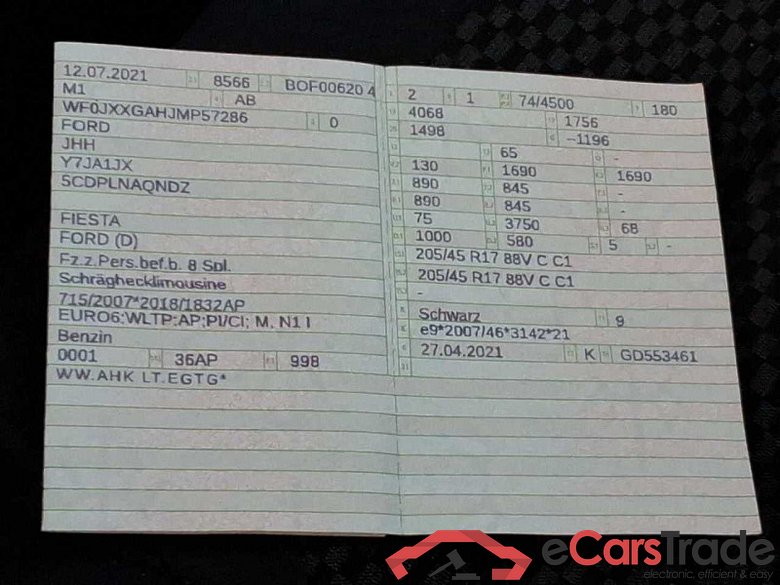 12.07.2021 8566 BOF00620 4
M1 AB
WF0JXXGAHJMP57286 0
FORD
JHH
Y7JA1JX
5CDPLNAQNDZ
FIESTA
FORD (D)
Fz.z.Pers.bef.b. 8 Spl.
Schräghecklimousine
715/2007*2018/1832AP
EURO6;WLTP;AP;PI/CI; M, N1 I
Benzin
0001 36AP 998
WW.AHK LT.EGTG*
2 1 74/4500 180
4068 1756
1498 –1196
65 -
130 1690 1690
890 845 -
890 845 -
75 3750 68
1000 580 5 -
205/45 R17 88V C C1
205/45 R17 88V C C1
-
Schwarz 9
e9*2007/46*3142*21
27.04.2021 K GD553461
eCarsTrade
electronic, efficient & easy